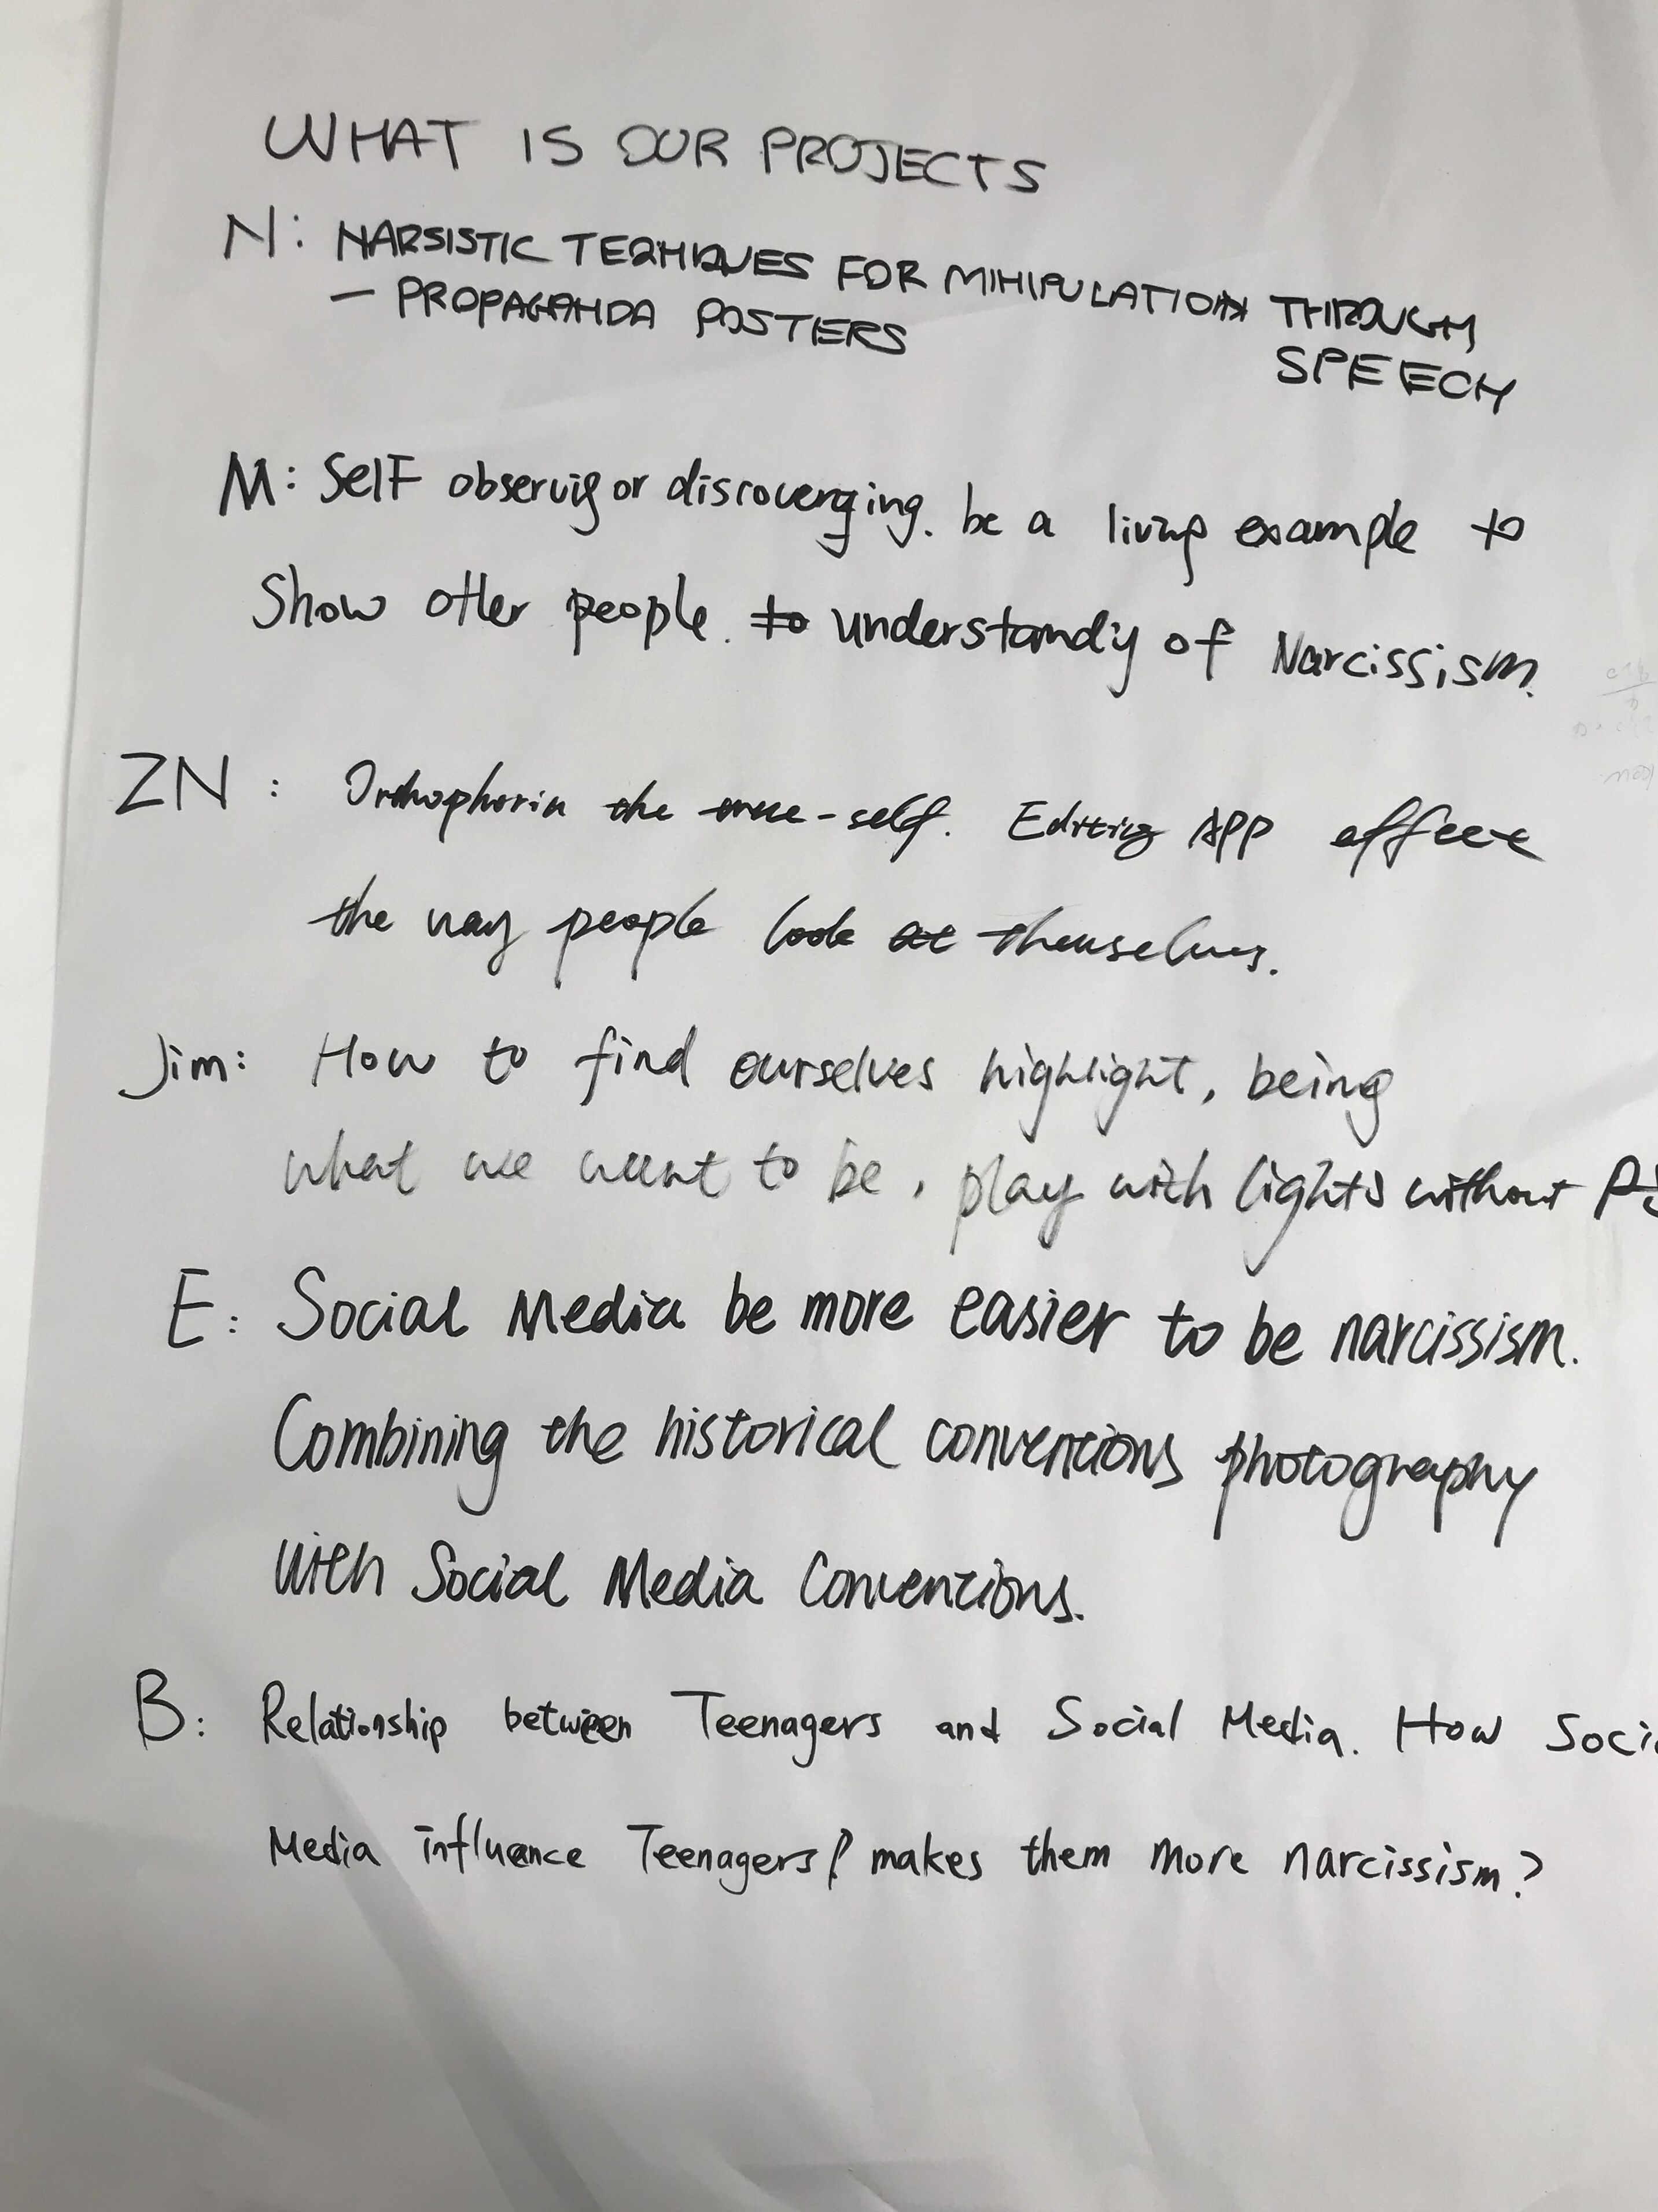 WHAT IS OUR PROJECTS
N: NARSISTIC TEQHIQUES FOR MIHIPULATION THROUGH
SPEECH
— PROPAGAHDA POSTERS
M: Self observig or discoverging. be a living example to
Show other people. to understandig of Narcissism.
ZN: Orthophoria the true-self. Editing APP effect
the way people look at themselves.
Jim: How to find ourselves highlight, being
what we want to be, play with lights without PS
E: Social Media be more easier to be narcissism.
Combining the historical conventions photography
with Social Media Conventions.
B: Relationship between Teenagers and Social Media. How Soci
Media influence Teenagers? makes them more narcissism?